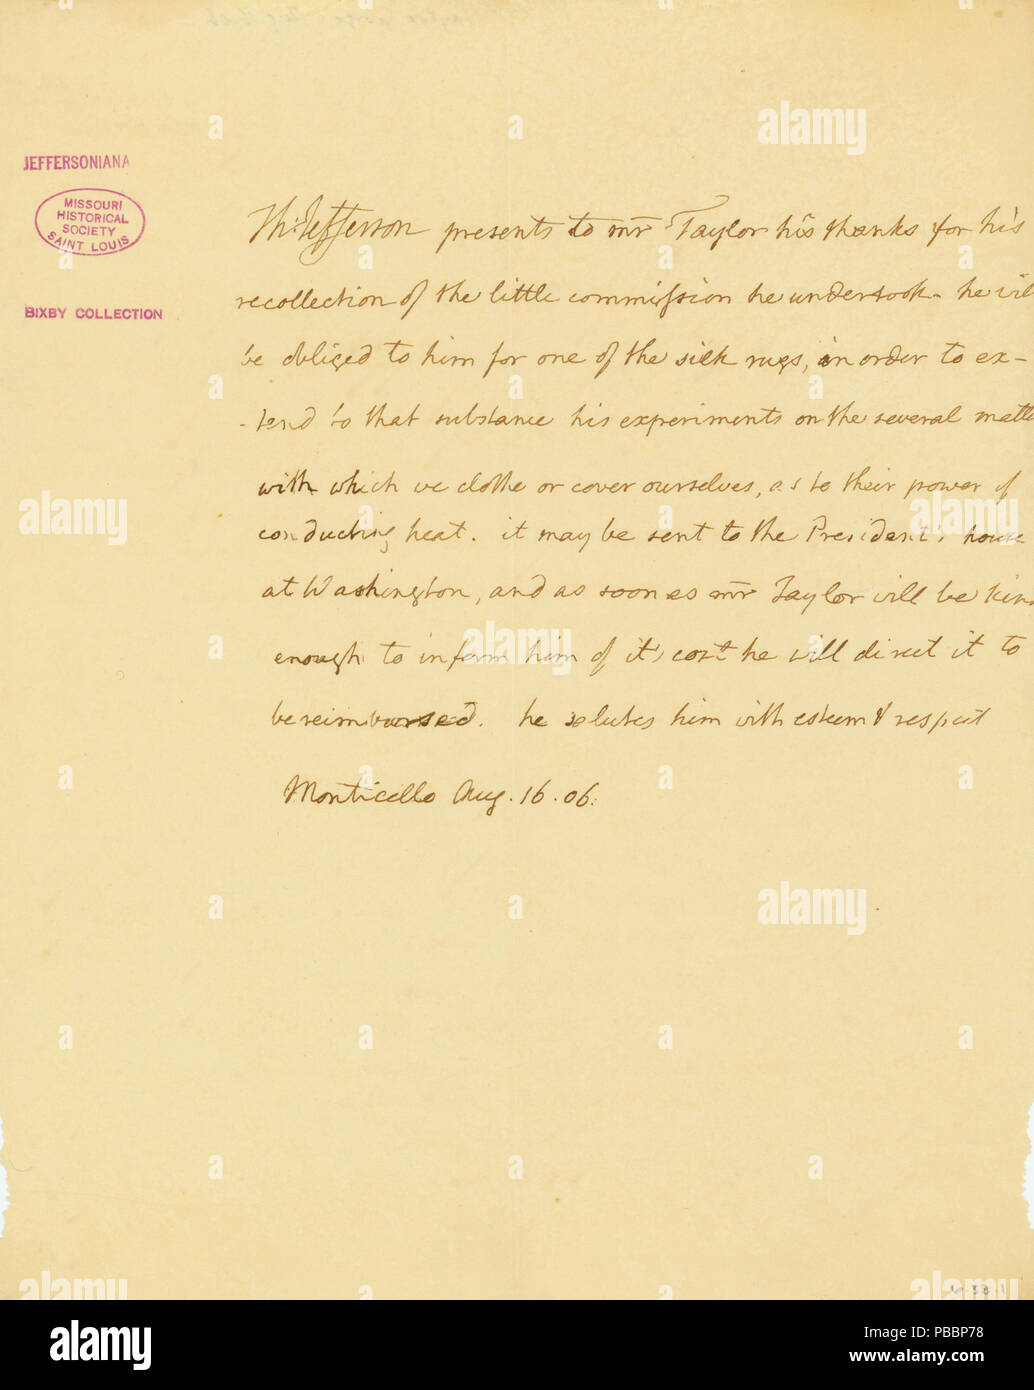 JEFFERSONIANA
MISSOURI
HISTORICAL
SOCIETY
SAINT LOUIS
BIXBY COLLECTION
Th: Jefferson presents to mr Taylor his thanks for his
recollection of the little commission he undertook. he wil
be obliged to him for one of the silk rugs, in order to ex-
-tend to that substance his experiments on the several matte
with which we clothe or cover ourselves, as to their power of
conducting heat. it may be sent to the President's house
at Washington, and as soon as mr Taylor will be kin
enough to inform him of it's cost he will direct it to
be reimbursed. he salutes him with esteem & respect
Monticello Aug. 16. 06.
alamy
alamy
Image ID: PBBP78
www.alamy.com